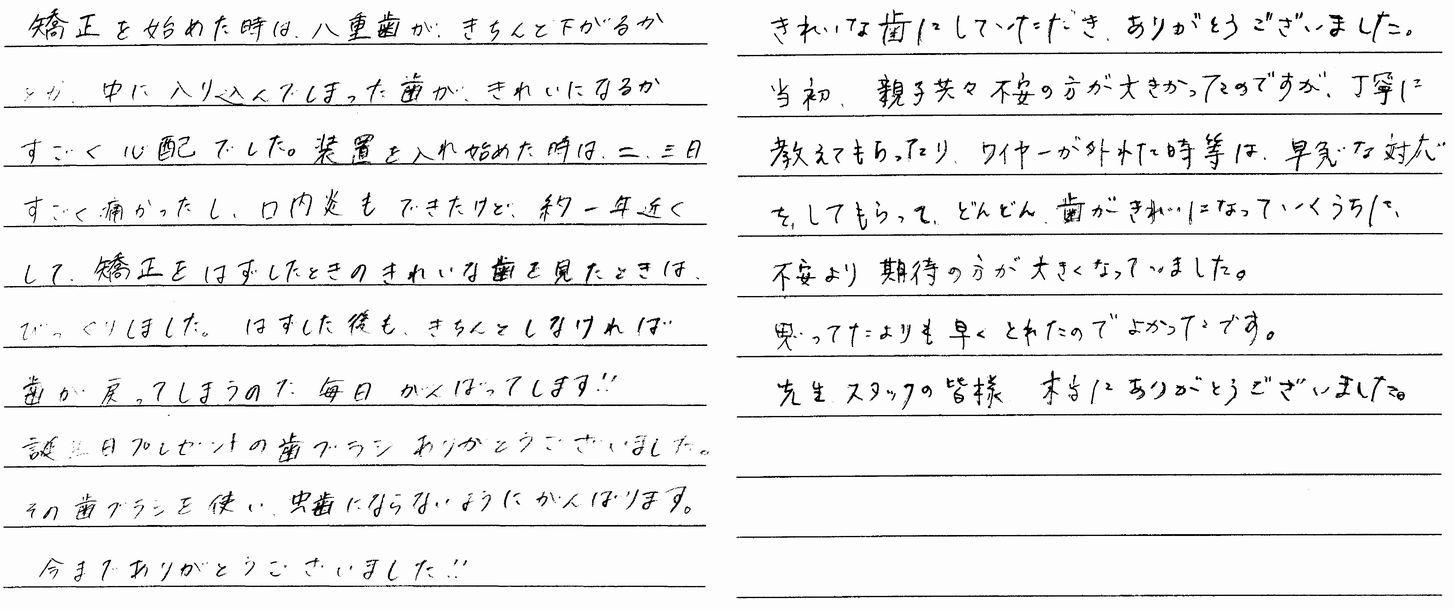 矯正を始めた時は、八重歯が、きちんと下がるか
とか、中に入り込んでしまった歯が、きれいになるか
すごく心配でした。装置を入れ始めた時は、二、三日
すごく痛かったし、口内炎もできたけど、約一年近く
して、矯正をはずしたときのきれいな歯を見たときは、
びっくりしました。はずした後も、きちんとしなければ
歯が戻ってしまうので毎日がんばってします!!
誕生日プレゼントの歯ブラシありがとうございました。
その歯ブラシを使い、虫歯にならないようにがんばります。
今までありがとうございました!!
きれいな歯にしていただき、ありがとうございました。
当初、親子共々不安の方が大きかったのですが、丁寧に
教えてもらったり、ワイヤーが外れた時等は、早急な対応
を、してもらって、どんどん、歯がきれいになっていくうちに、
不安より期待の方が大きくなっていました。
思ってたよりも早くとれたのでよかったです。
先生、スタッフの皆様、本当にありがとうございました。